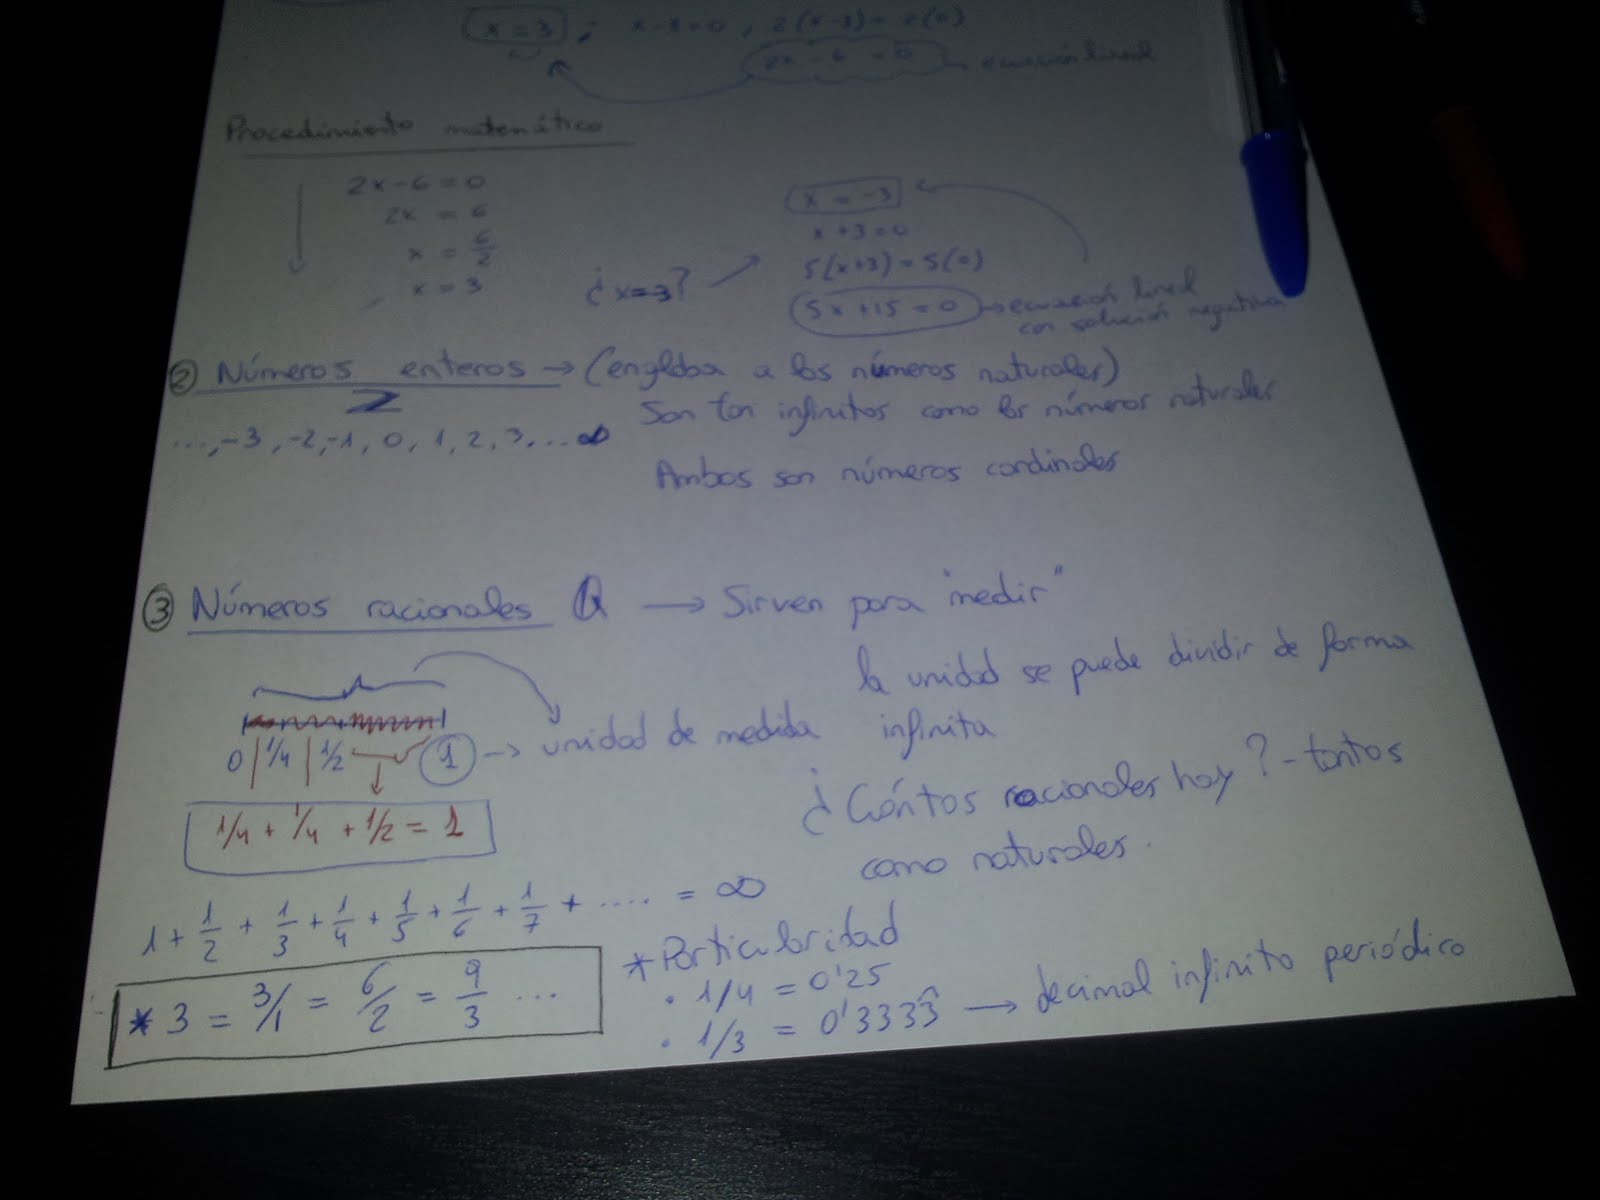 x = 3 ; x-3=0 , 2(x-3)= 2(0)
2x - 6 = 0 ecuación lineal
Procedimiento matemático
2x-6=0
2x = 6
x = 6/2
x = 3
¿x=-3?
x = -3
x+3=0
5(x+3)=5(0)
5x+15=0 → ecuación lineal
con solución negativa
② Números enteros → (engloba a los números naturales)
Z
..., -3, -2, -1, 0, 1, 2, 3, ... ∞
Son tan infinitos como los números naturales
Ambos son números cardinales
③ Números racionales Q → Sirven para "medir"
la unidad se puede dividir de forma
infinita
0 | 1/4 | 1/2 1 → unidad de medida
1/4 + 1/4 + 1/2 = 1
¿Cuántos racionales hay? - tantos
como naturales.
1 + 1/2 + 1/3 + 1/4 + 1/5 + 1/6 + 1/7 + .... = ∞
* 3 = 3/1 = 6/2 = 9/3 ...
* Particularidad
· 1/4 = 0'25
· 1/3 = 0'3333̂ → decimal infinito periódico